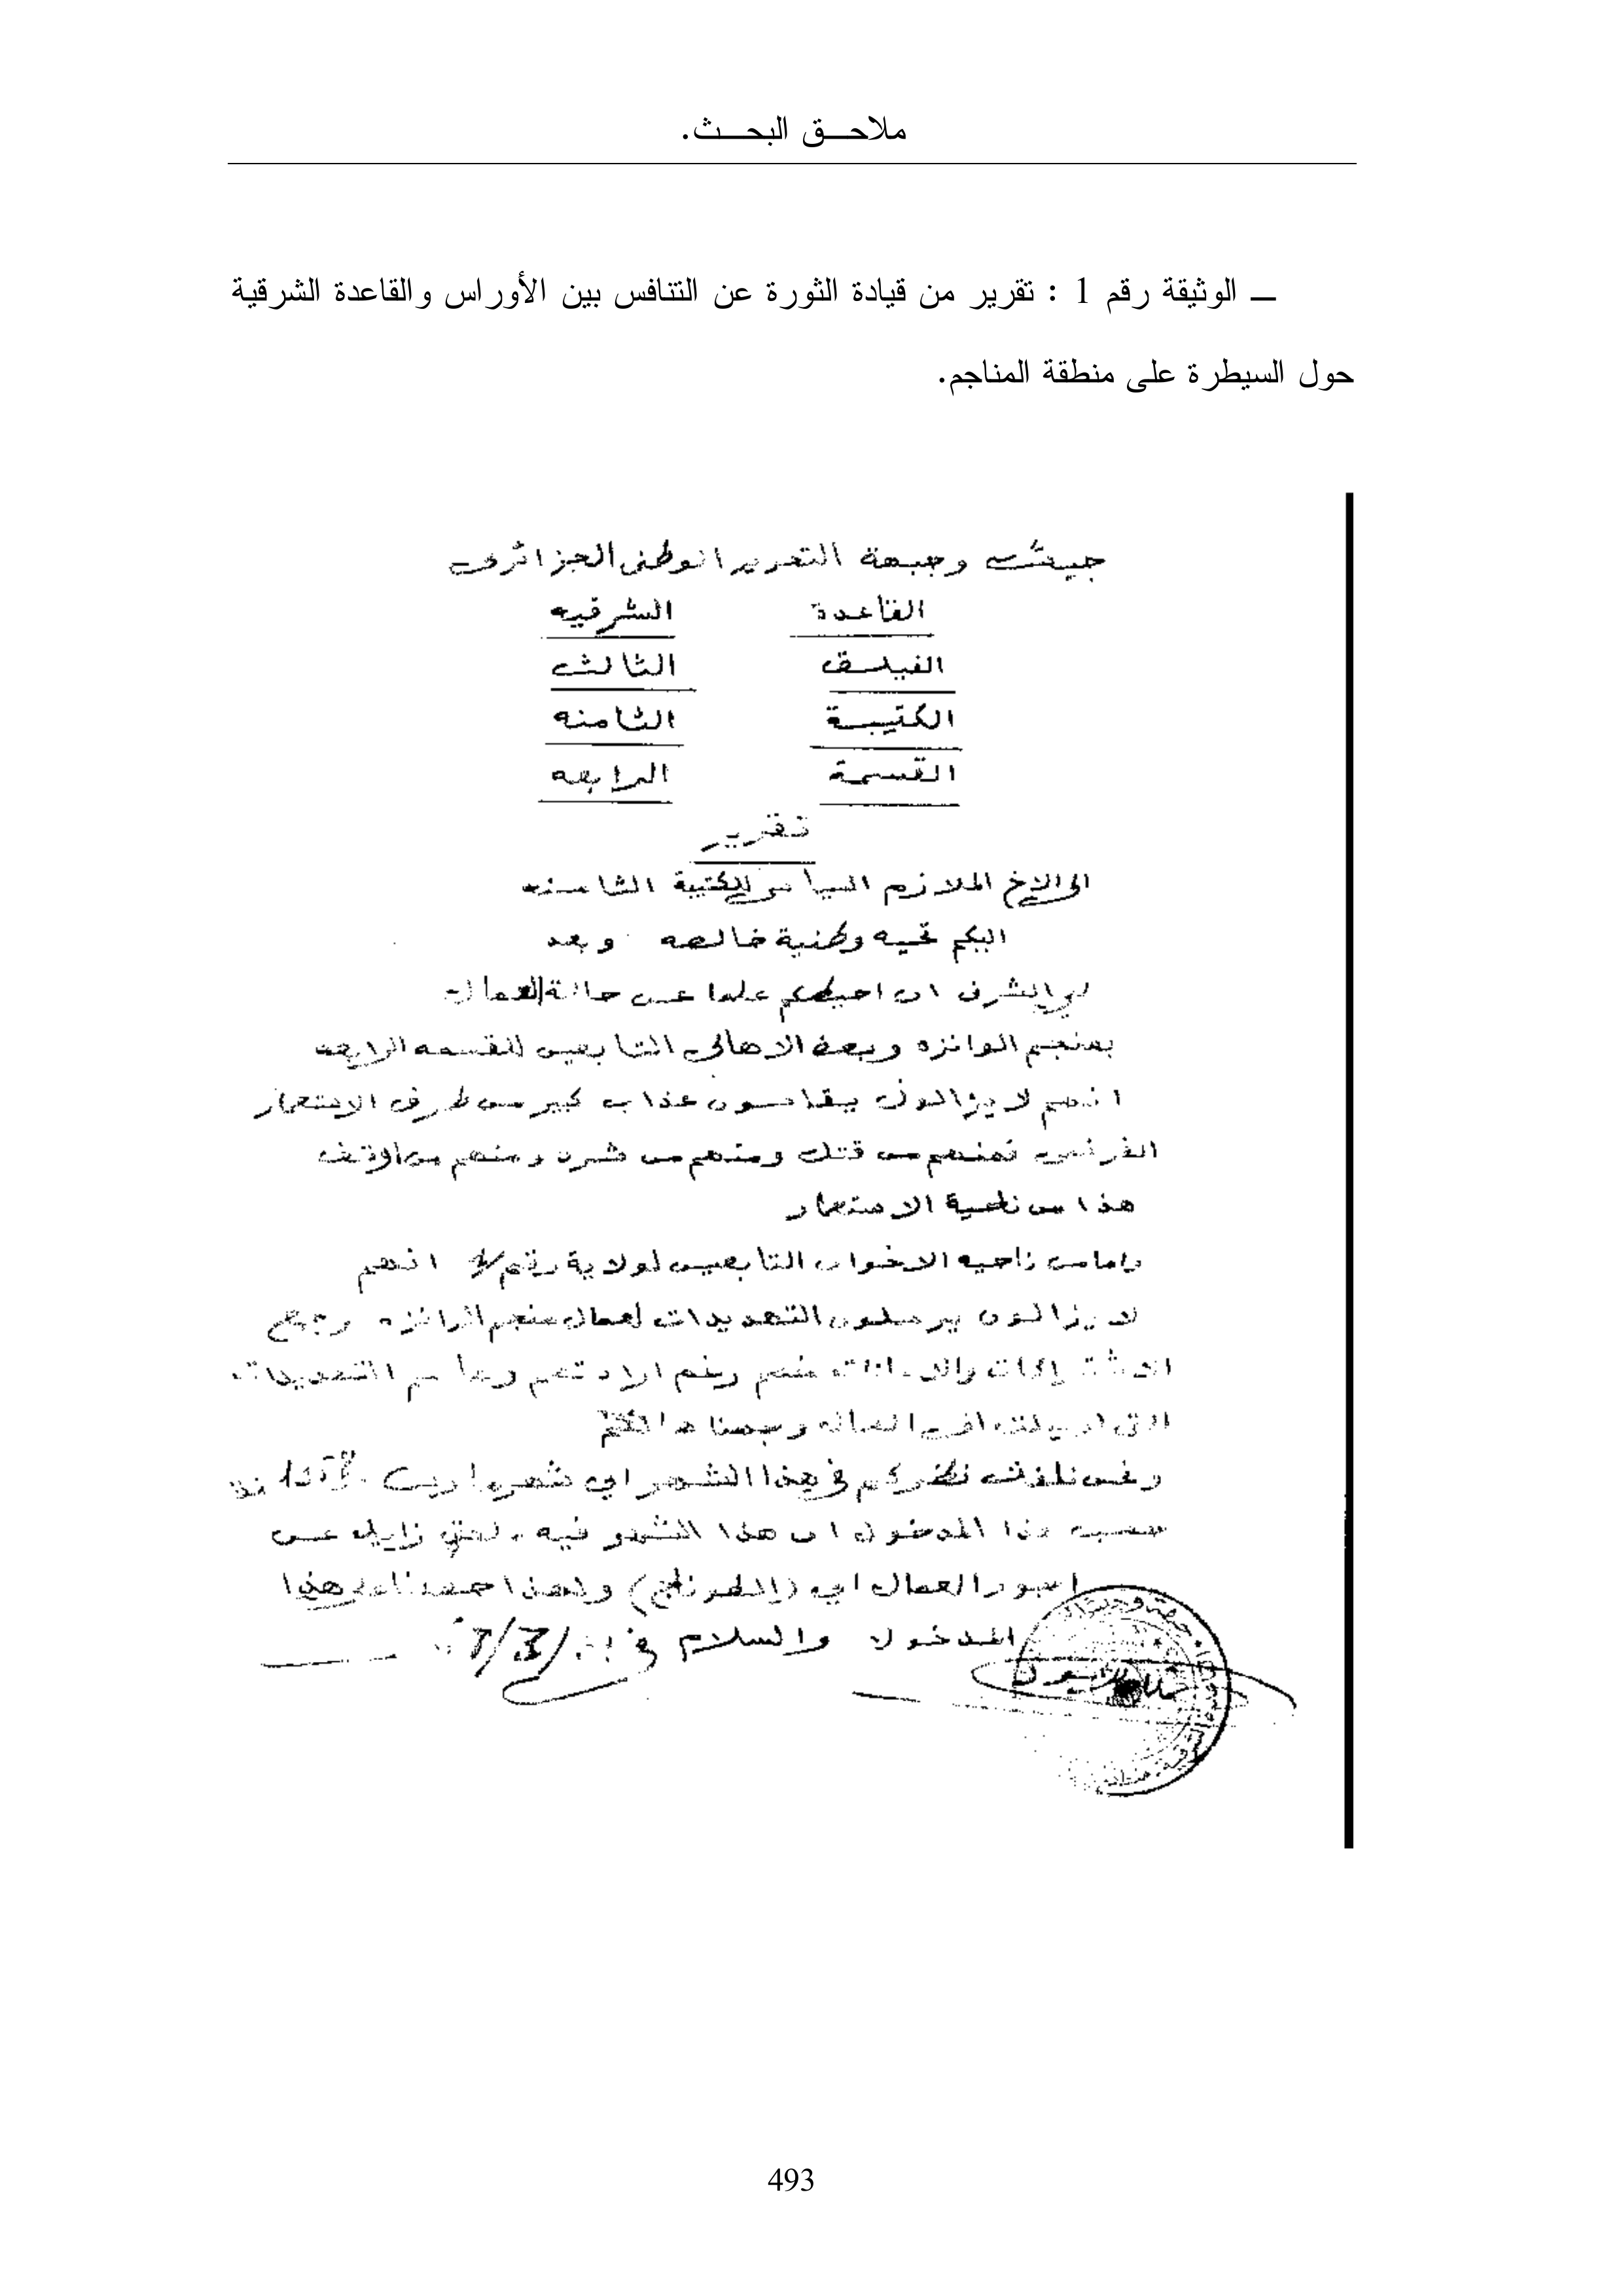 ملاحـــق البحـــث.
ــ الوثيقة رقم 1 : تقرير من قيادة الثورة عن التنافس بين الأوراس والقاعدة الشرقية
حول السيطرة على منطقة المناجم.
جيش وجبهة التحرير الوطني الجزائري
القاعدة الشرقيه
الفيلق الثالث
الكتيبة الثامنه
القسمة الرابعه
تقرير
الى الاخ الملازم السياسي للكتيبة الثامنه
اليكم تحيه وطنية خالصه وبعد
لي الشرف ان احيطكم علما عن حالة العمال
بمنجم الوانزه وبعض الاهالي التابعين للقسمه الرابعه
انهم لا يزالون يقاسون عذاب كبير من طرف الاستعمار
الفرنسي فمنهم من قتل ومنهم من شرد ومنهم من اوقف
هذا من ناحية الاستعمار
واما من ناحيه الاخوان التابعين لولاية رقم 1 انهم
لا يزالون يرسلون التهديدات لعمال منجم الوانزه وجميع
الاشتراكات منهم رغم ارادتهم وها هي التهديدات
التي ارسلت
ونحن نلفت نظركم في هذا الشهر اي شهر مارس
حسب هذا المدخول ان هذا الشهر فيه زايد عن
اجور العمال اي ولهذا هذا
المدخول والسلام في